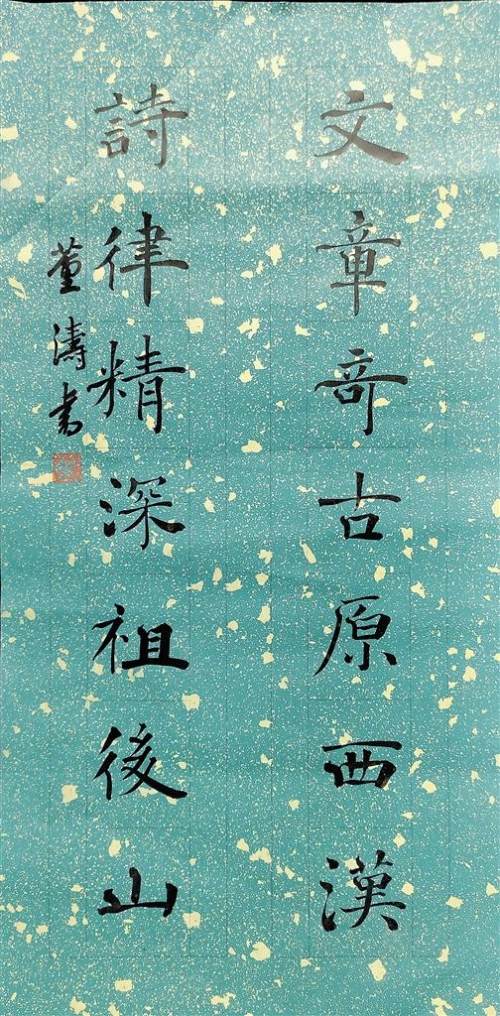 文章奇古原西漢
詩律精深祖後山
董濤書